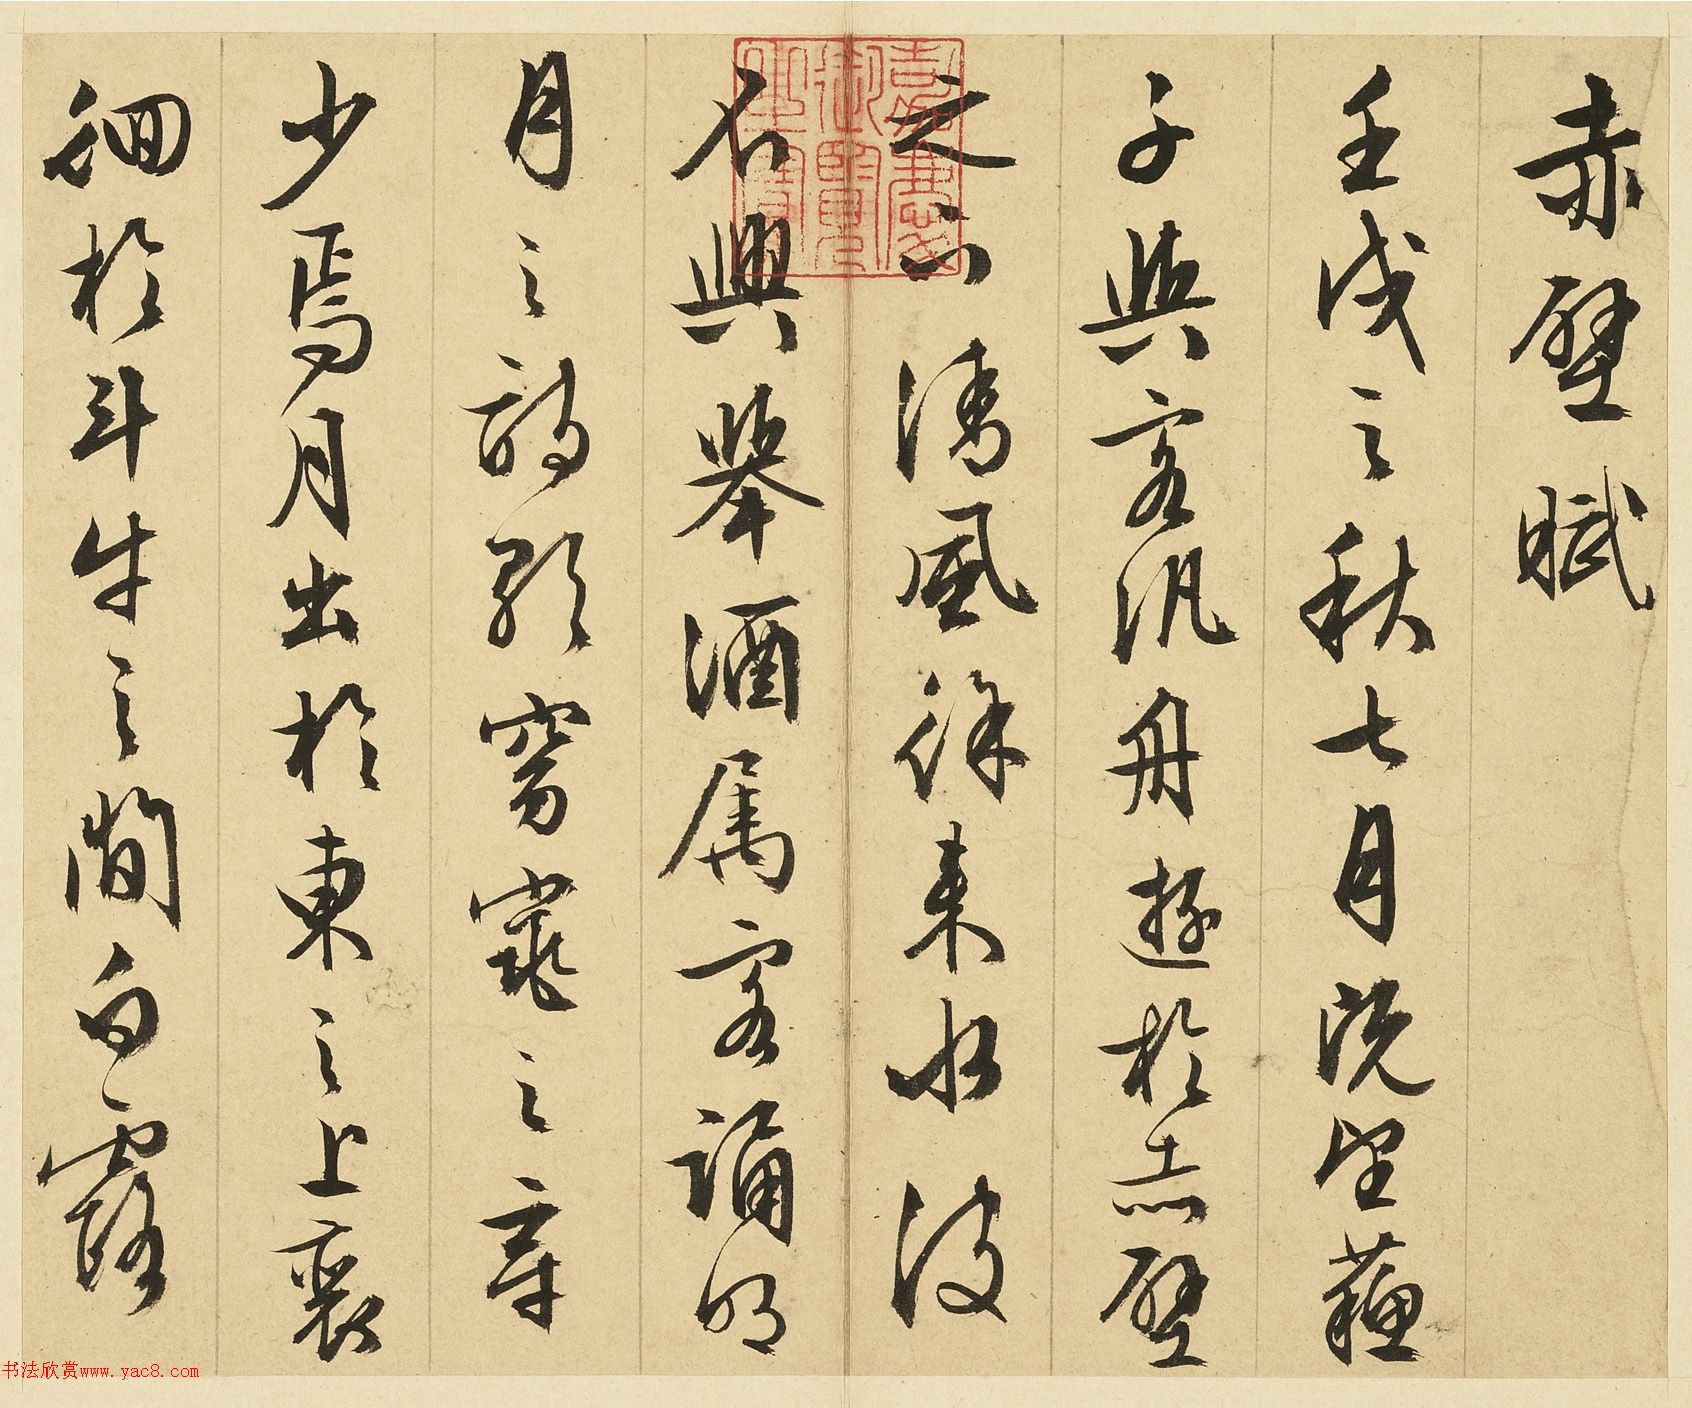 赤壁賦
壬戌之秋七月既望蘇
子與客汎舟遊於赤壁
之下清風徐來水波
不興舉酒属客誦明
月之詩歌窈窕之章
少焉月出於東之上裵
徊於斗牛之間白露
嘉慶御覽之寶
书法欣赏www.yac8.com